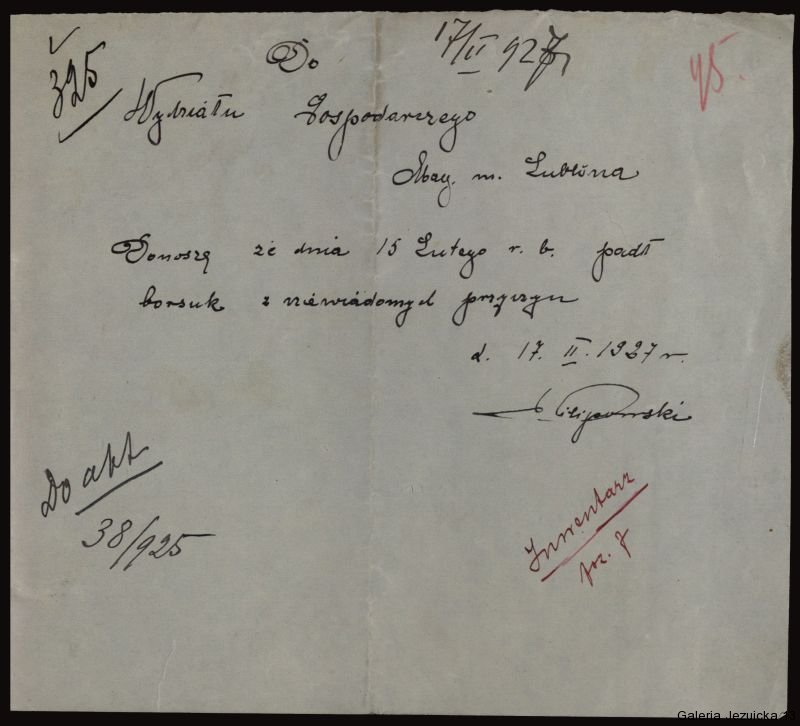 325
Do
17/II 927
95.
Wydziału Gospodarczego
Mag. m. Lublina
Donoszę że dnia 15 Lutego r. b. padł
borsuk z niewiadomych przyczyn
d. 17. II. 1927 r.
Filipowski
Do akt
38/925
Inwentarz
poz. 7
Galeria Jezuicka